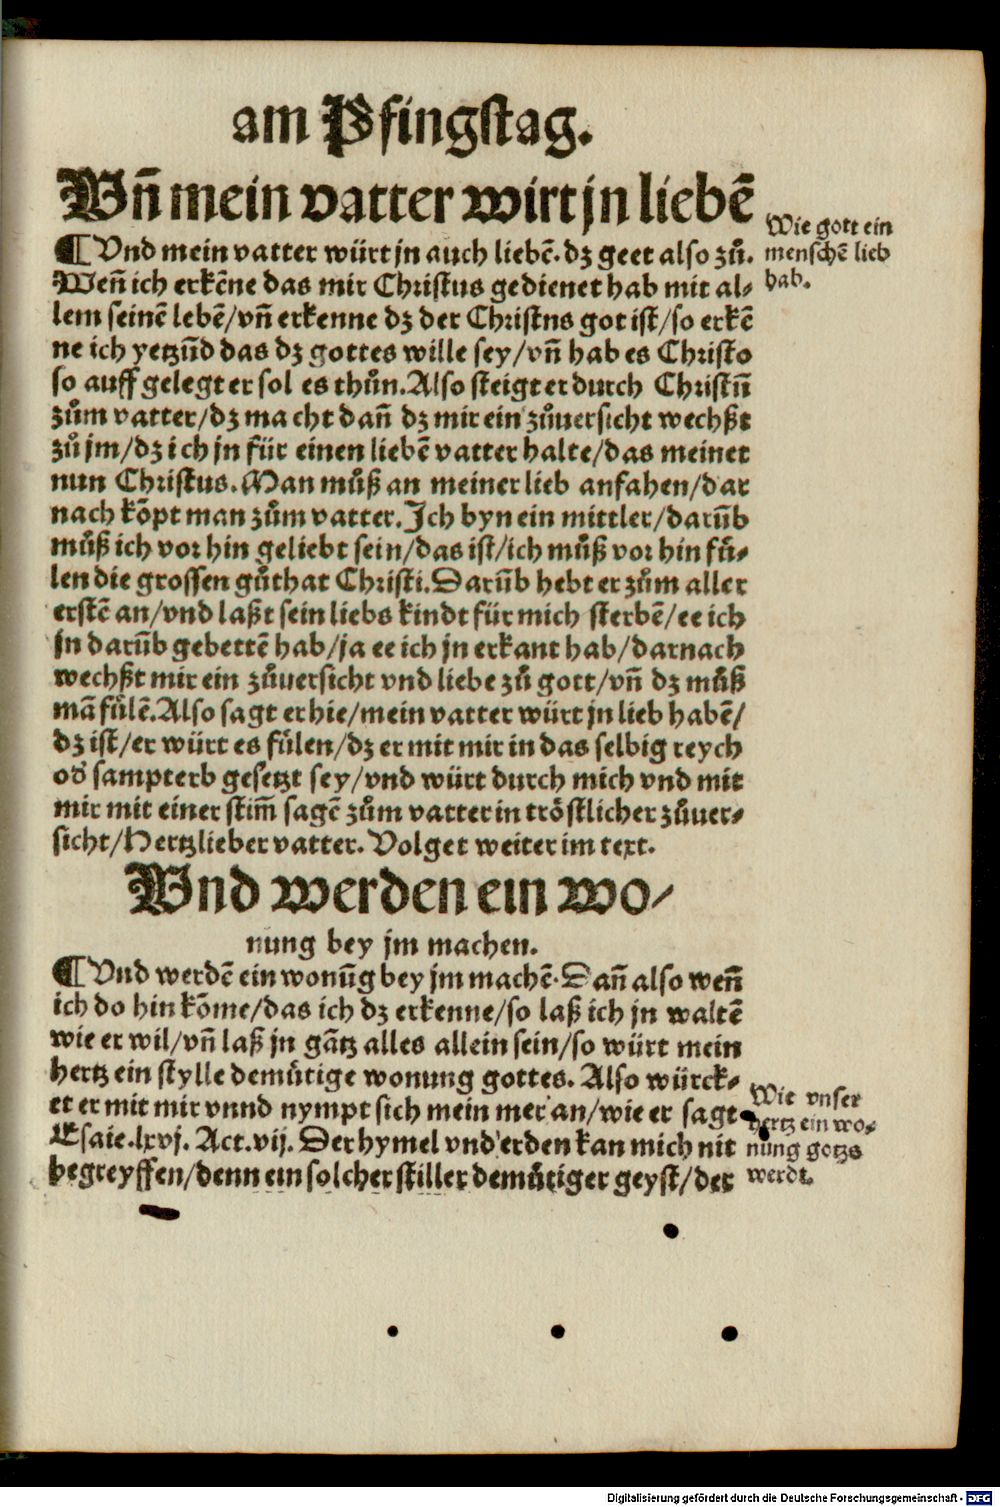 am Pfingstag.
Vñ mein vatter wirt jn liebē
¶ Vnd mein vatter würt jn auch liebē. dz geet also zů.
Weñ ich erkēne das mir Christus gedienet hab mit al⸗
lem seinē lebē/vñ erkenne dz der Christns got ist/so erkē
ne ich yetzūd das dz gottes wille sey/vñ hab es Christo
so auff gelegt er sol es thůn. Also steigt er durch Christū
zům vatter/dz ma cht dañ dz mir ein zůuersicht wechßt
zů jm/dz ich jn für einen liebē vatter halte/das meinet
nun Christus. Man můß an meiner lieb anfahen/dar
nach kōpt man zům vatter. Ich byn ein mittler/darūb
můß ich vor hin geliebt sein/das ist/ich můß vor hin fů⸗
len die grossen gůthat Christi. Darūb hebt er zům aller
erstē an/vnd laßt sein liebs kindt für mich sterbē/ee ich
jn darūb gebettē hab/ja ee ich jn erkant hab/darnach
wechßt mir ein zůuersicht vnd liebe zů gott/vñ dz můß
mā fůlē. Also sagt er hie/mein vatter würt jn lieb habē/
dz ist/er würt es fůlen/dz er mit mir in das selbig reych
od̄ sampterb gesetzt sey/vnd würt durch mich vnd mit
mir mit einer stim̄ sagē zům vatter in tröstlicher zůuer⸗
sicht/Hertzlieber vatter. Volget weiter im text.
Vnd werden ein wo⸗
nung bey jm machen.
¶ Vnd werdē ein wonūg bey jm machē. Dañ also weñ
ich do hin kōme/das ich dz erkenne/so laß ich jn waltē
wie er wil/vñ laß jn gātz alles allein sein/so würt mein
hertz ein stylle demůtige wonung gottes. Also würck⸗
et er mit mir vnnd nympt sich mein mer an/wie er sagt
Esaie. lxvj. Act. vij. Der hymel vnd erden kan mich nit
begreyffen/denn ein solcher stiller demůtiger geyst/der
Wie gott ein
menschē lieb
hab.
Wie vnser
hertz ein wo⸗
nung gotzs
werdt.
Digitalisierung gefördert durch die Deutsche Forschungsgemeinschaft - DFG